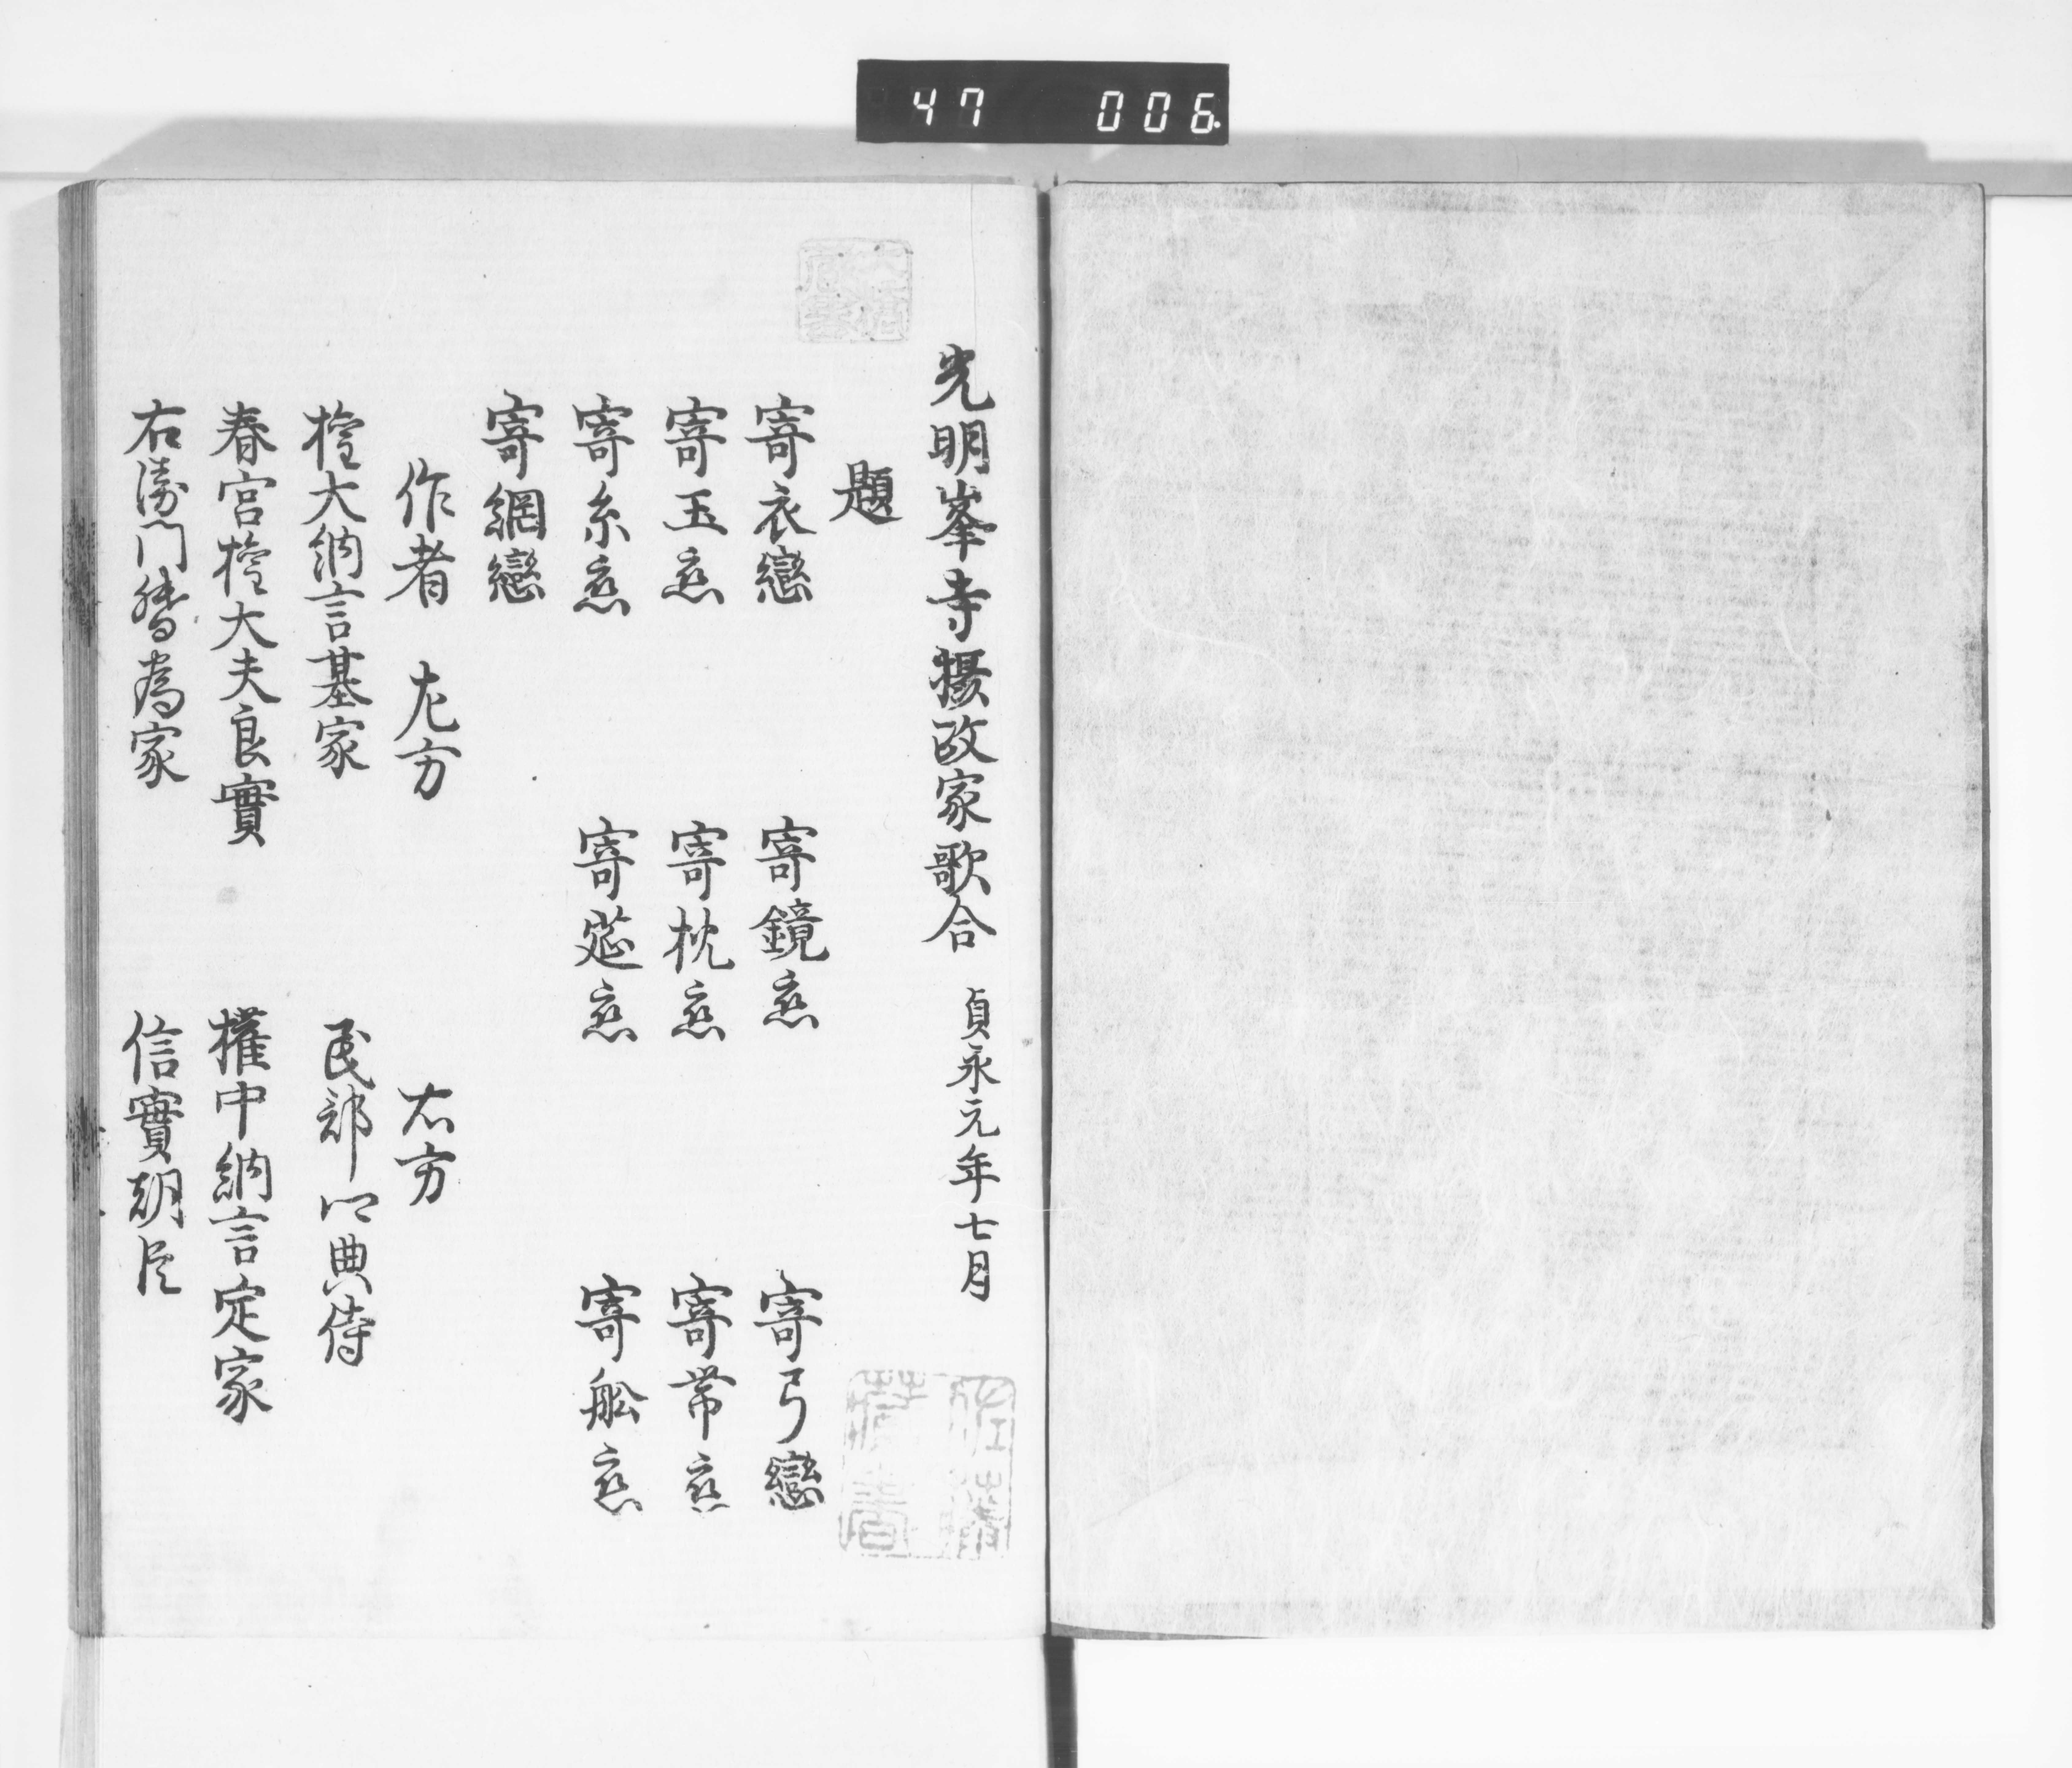 47 006
光明峯寺摂政家歌合 貞永元年七月
題
寄衣戀 寄鏡恋 寄弓戀
寄玉恋 寄枕恋 寄帯恋
寄糸恋 寄莚恋 寄舩恋
寄網戀
作者 左方 右方
権大納言基家 民部卿典侍
春宮権大夫良實 權中納言定家
右衛門督為家 信實朝臣